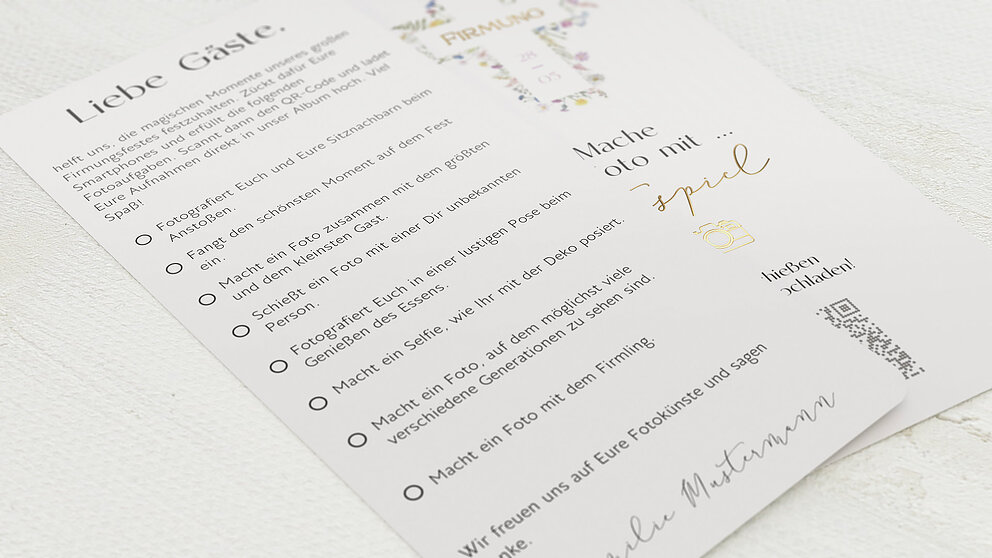 Liebe Gäste,
helft uns, die magischen Momente unseres großen
Firmungsfestes festzuhalten. Zückt dafür Eure
Smartphones und erfüllt die folgenden
Fotoaufgaben. Scannt dann den QR-Code und ladet
Eure Aufnahmen direkt in unser Album hoch. Viel
Spaß!
Fotografiert Euch und Eure Sitznachbarn beim
Anstoßen.
Fangt den schönsten Moment auf dem Fest
ein.
Macht ein Foto zusammen mit dem größten
und dem kleinsten Gast.
Schießt ein Foto mit einer Dir unbekannten
Person.
Fotografiert Euch in einer lustigen Pose beim
Genießen des Essens.
Macht ein Selfie, wie Ihr mit der Deko posiert.
Macht ein Foto, auf dem möglichst viele
verschiedene Generationen zu sehen sind.
Macht ein Foto mit dem Firmling.
Wir freuen uns auf Eure Fotokünste und sagen
nke.
ilie Mustermann
FIRMUNG
28
05
Mache
oto mit ...
spiel
hießen
ochladen!